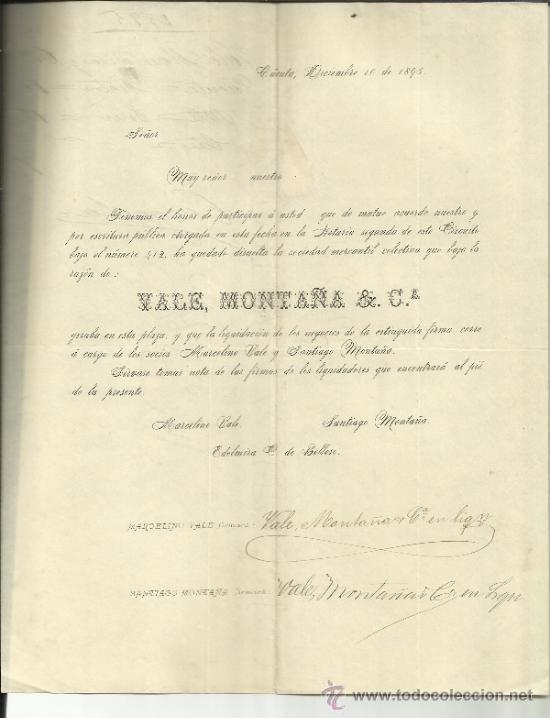 Cúcuta, Diciembre 10 de 1895.
Señor
Muy señor nuestro:
Tenemos el honor de participar á usted que de mutuo acuerdo nuestro y
por escritura pública otorgada en esta fecha en la Notaría segunda de este Circuito
bajo el número 412, ha quedado disuelta la sociedad mercantil colectiva que bajo la
razón de:
VALE, MONTAÑA & C.A
giraba en esta plaza, y que la liquidación de los negocios de la extinguida firma corre
á cargo de los socios Marcelino Vale y Santiago Montaña.
Sírvase tomar nota de las firmas de los liquidadores que encontrará al pié
de la presente.
Marcelino Vale. Santiago Montaña.
Edelmira P. de Belloso.
MARCELINO VALE firmará: Vale, Montaña & Ca. en liqn
SANTIAGO MONTAÑA firmará: Vale, Montaña & Ca. en Lqn
www.todocoleccion.net